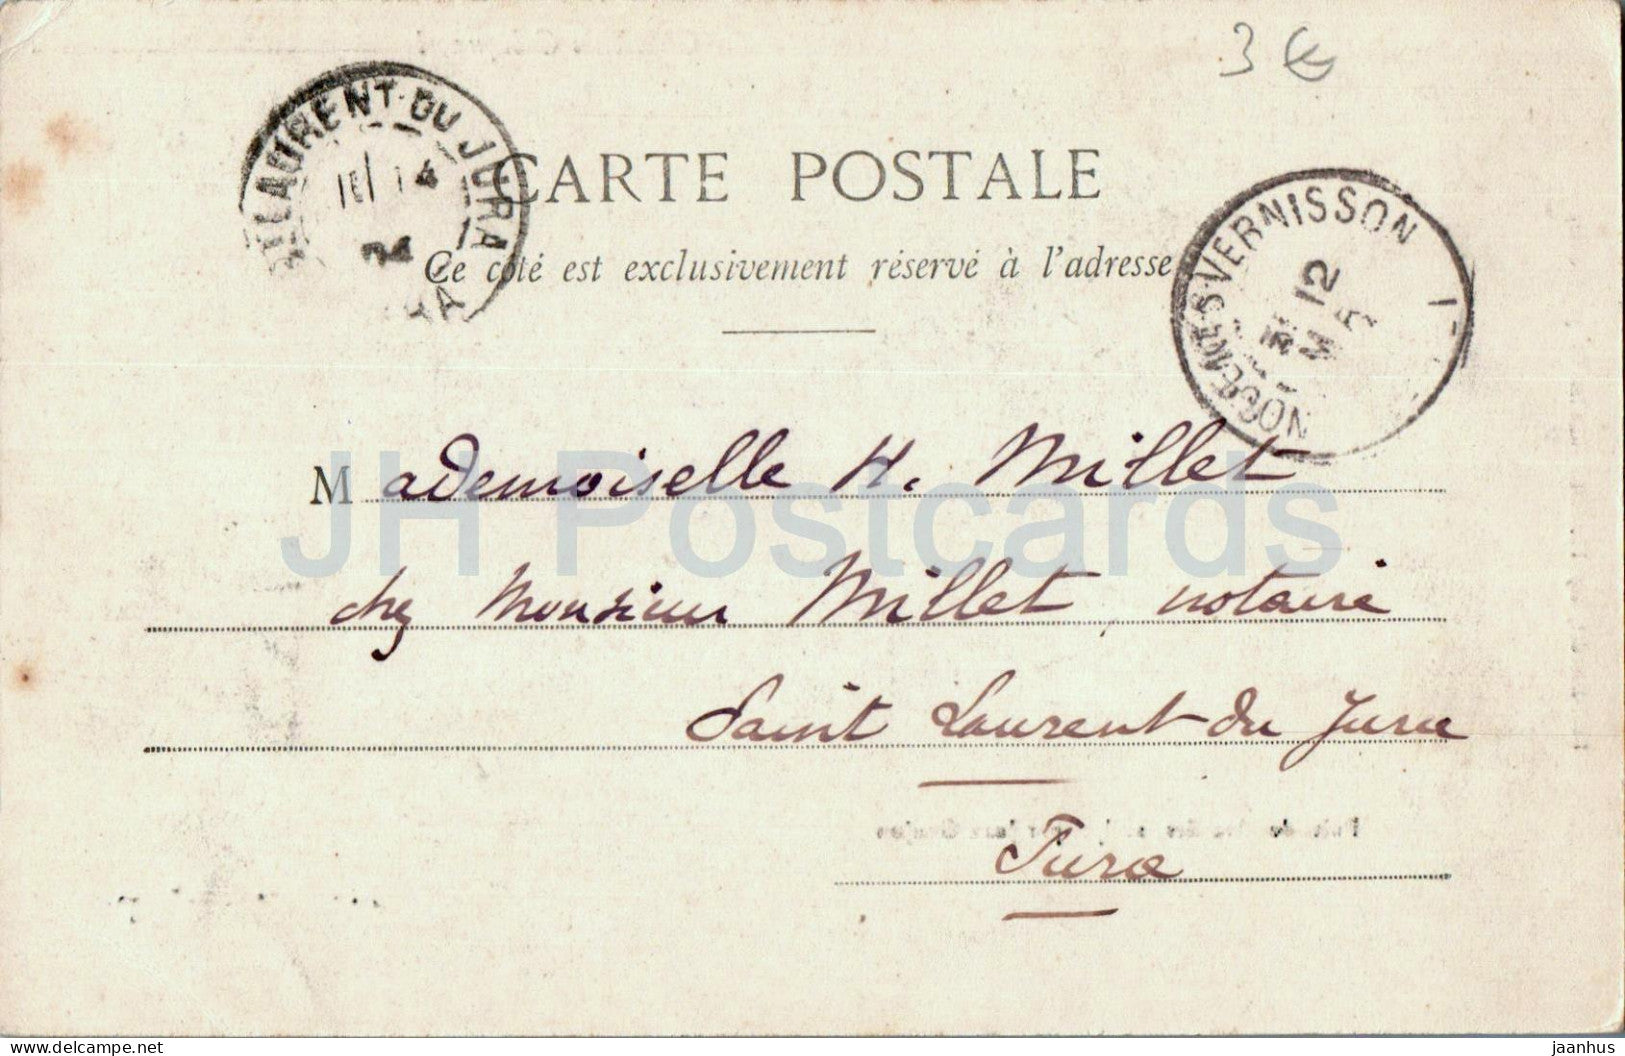 3 €
CARTE POSTALE
Ce côté est exclusivement réservé à l'adresse
ST LAURENT-DU-JURA
14
NOGENT-S-VERNISSON
12
Mademoiselle H. Millet
chez Monsieur Millet, notaire
Saint Laurent-du Jura
Jura
JH Postcards
www.delcampe.net
jaanhus